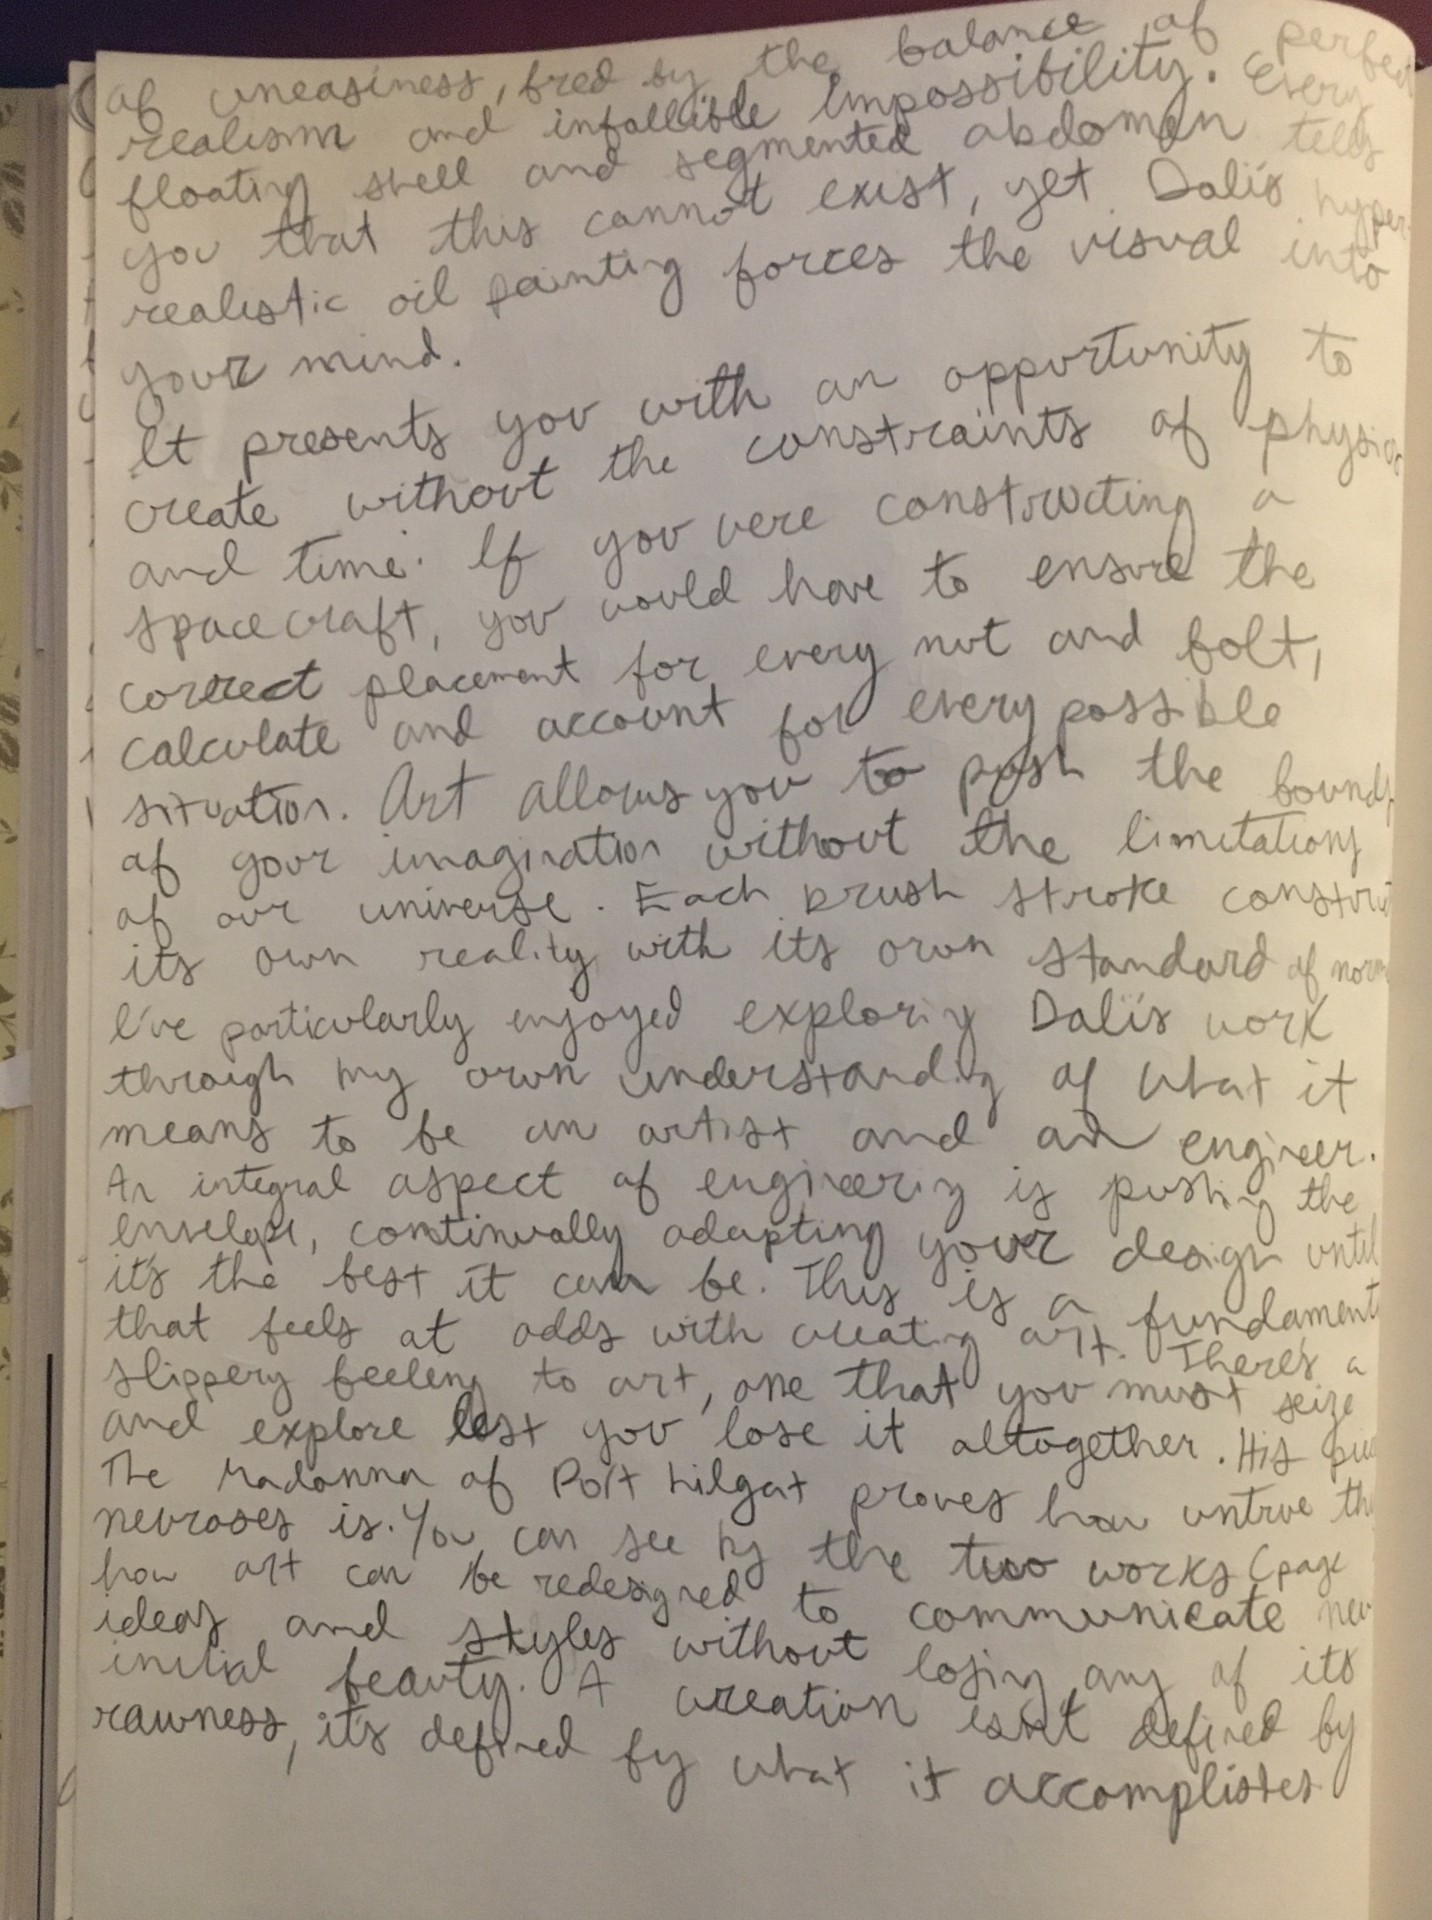 of uneasiness, bred by the balance of perfect
realism and infallible impossibility. Every
floating shell and segmented abdomen tells
you that this cannot exist, yet Dalí's hyper
realistic oil painting forces the visual into
your mind.
It presents you with an opportunity to
create without the constraints of physics
and time. If you were constructing a
spacecraft, you would have to ensure the
correct placement for every nut and bolt,
calculate and account for every possible
situation. Art allows you to push the bounds
of your imagination without the limitations
of our universe. Each brush stroke constru
its own reality with its own standard of norm
I've particularly enjoyed exploring Dalí's work
through my own understanding of what it
means to be an artist and an engineer.
An integral aspect of engineering is pushing the
envelope, continually adapting your design until
it's the best it can be. This is a fundament
that feels at odds with creating art. There's a
slippery feeling to art, one that you must seize
and explore lest you lose it altogether. His pie
The Madonna of Port Lligat proves how untrue th
neuroses is. You can see by the two works (page
how art can be redesigned to communicate new
ideas and styles without losing any of its
initial beauty. A creation isn't defined by
rawness, it's defined by what it accomplishes